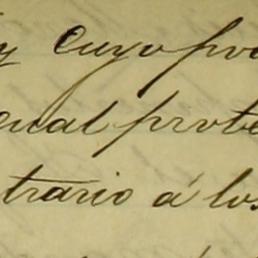 y cuyo po
ual prote
trario á los